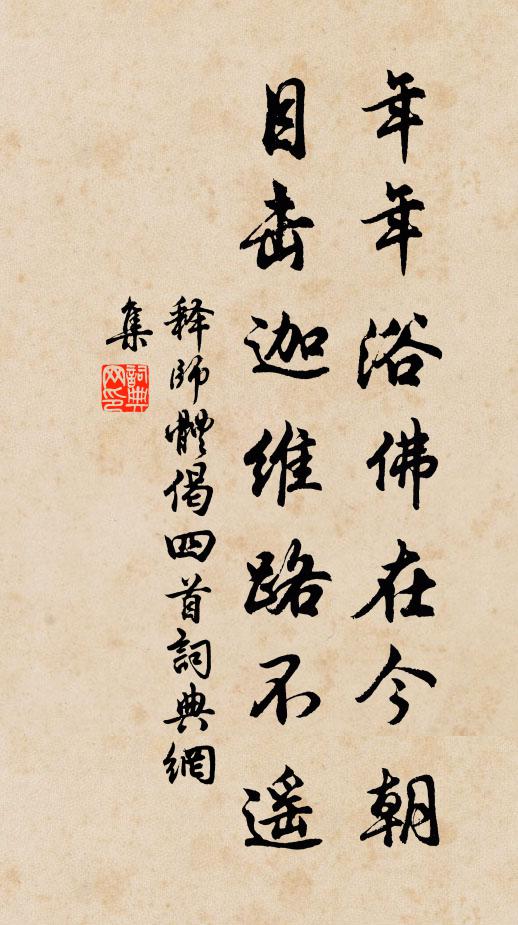 年年浴佛在今朝
目击迦维路不遥
释师體偈四首詞典網
集
詞典网印